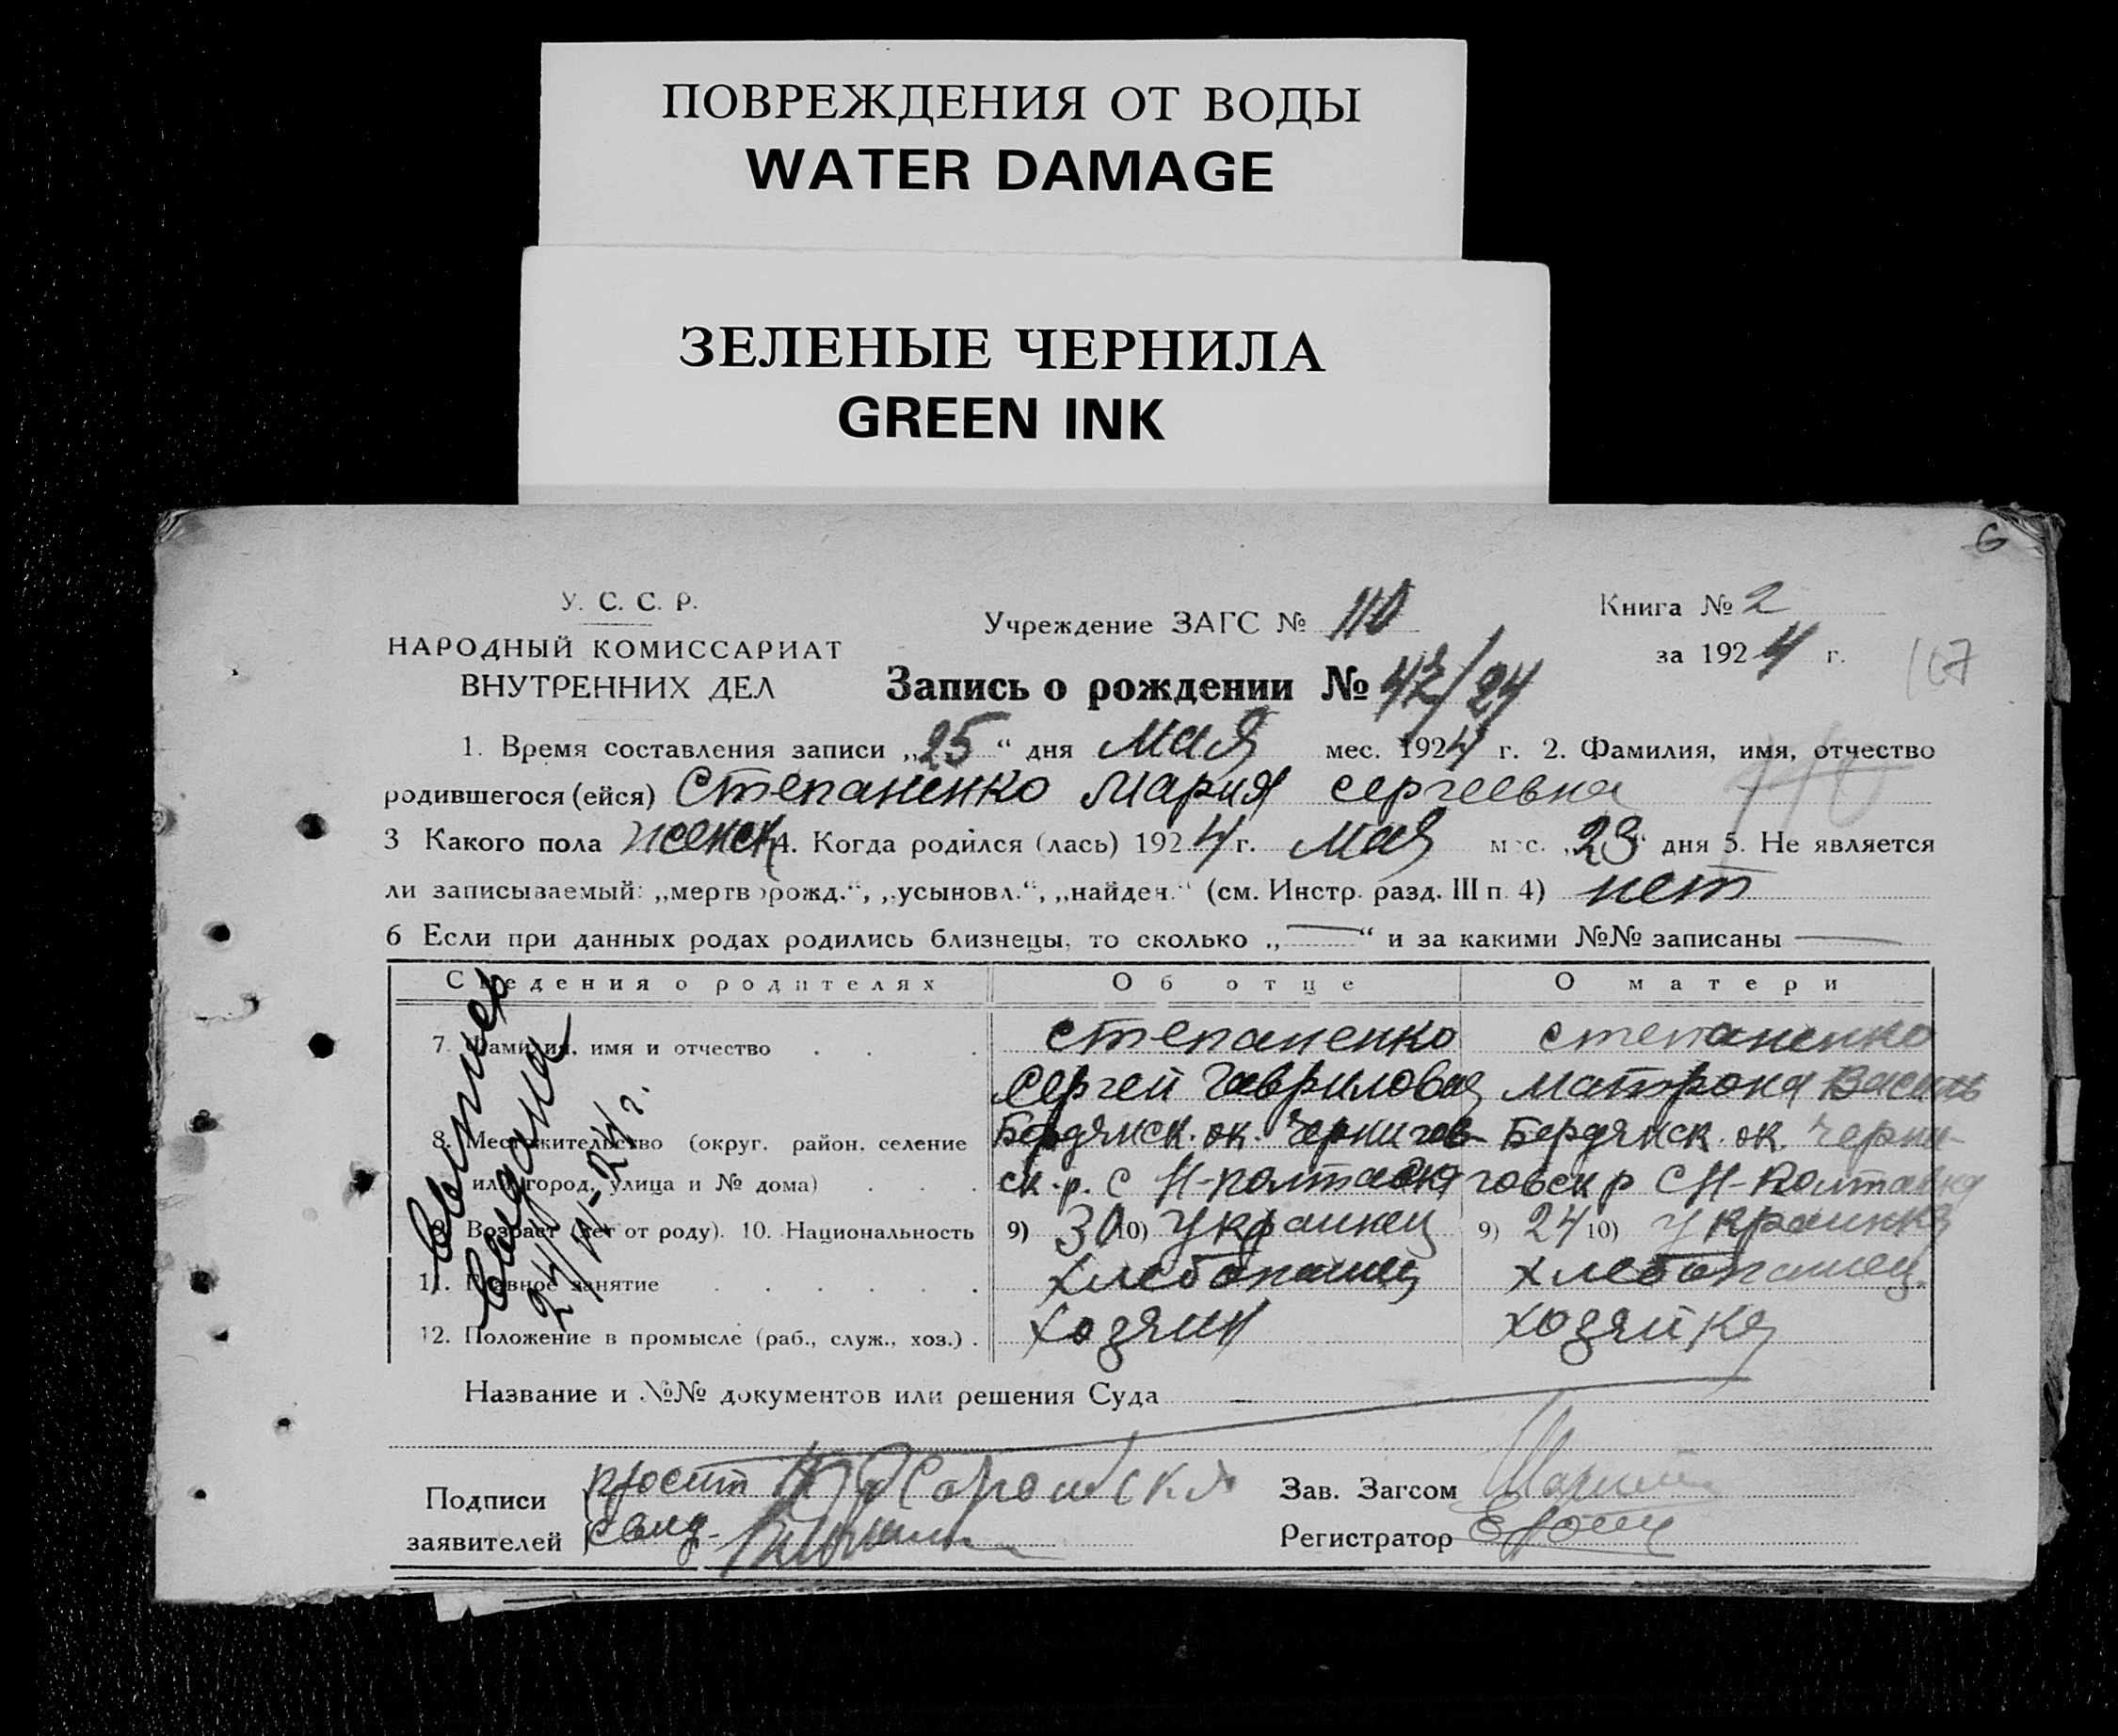 ПОВРЕЖДЕНИЯ ОТ ВОДЫ
WATER DAMAGE
ЗЕЛЕНЫЕ ЧЕРНИЛА
GREEN INK
6
У. С. С. Р.
НАРОДНЫЙ КОМИССАРИАТ
ВНУТРЕННИХ ДЕЛ
Учреждение ЗАГС № 110
Книга № 2
за 1924 г.
Запись о рождении №
1. Время составления записи „25“ дня Мая мес. 1924 г. 2. Фамилия, имя, отчество
родившегося (ейся) Степаненко Мария Сергеевна
3 Какого пола женск 4. Когда родился (лась) 1924 г. Мая мес. „23“ дня 5. Не является
ли записываемый: „мертворожд.“, „усыновл.“, „найден.“ (см. Инстр. разд. III п. 4) нет
6 Если при данных родах родились близнецы, то сколько „—“ и за какими №№ записаны —
Сведения о родителях Об отце О матери
7. Фамилия, имя и отчество Степаненко Степаненко
Сергей Гаврилович Матрона Василь
8. Местожительство (округ, район, селение Бердянск. ок. Чернигов- Бердянск. ок. Черни-
или город, улица и № дома) ск. р. с Н-Полтавка говск р с Н-Полтавка
9. Возраст (лет от роду). 10. Национальность 9) 30 10) Украинец 9) 24 10) Украинка
11. Главное занятие хлебопашец хлебопашец
12. Положение в промысле (раб., служ., хоз.) хозяин хозяйка
Название и №№ документов или решения Суда —
Подписи
заявителей
Зав. Загсом
Регистратор